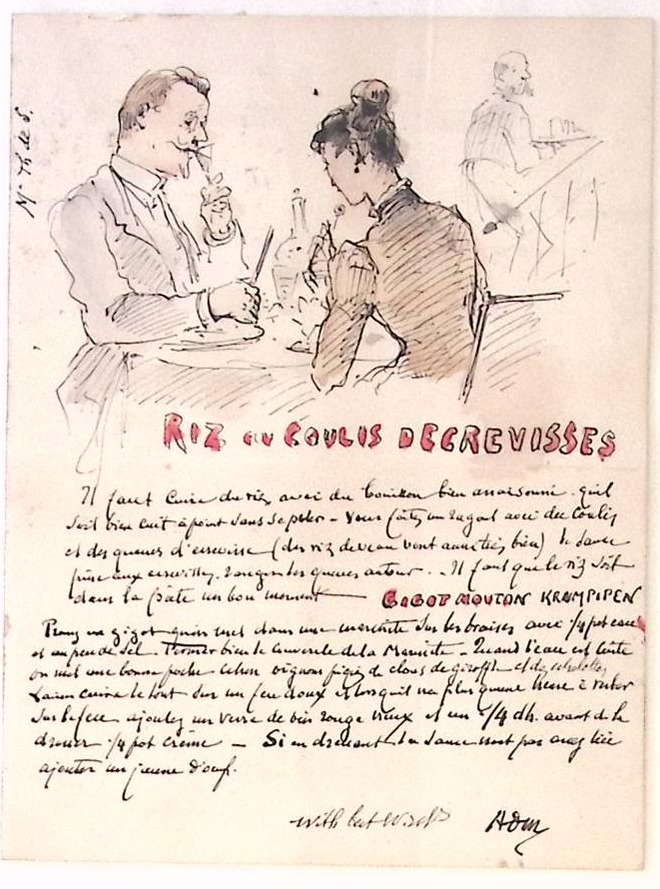 RIZ au COULIS DECREVISSES
Il faut cuire du riz avec du bouillon bien assaisonné. qu'il
soit bien cuit à point sans se péter - Vous faites un ragout avec du Coulis
et des queues d'ecrevisse (des riz de veau vont aussi très bien) la sauce
les queues autour. - Il faut que le riz soit
dans la pate un bon moment
GIGOT MOUTON KRAMPIPEN
un gigot qu'on met dans une marmite sur les braises avec 1/4 pot eau
et un peu de sel. Fermer bien le couvercle de la Marmite - Quand l'eau est
on met une bonne oignons piqués de clous de giroffle et des
cuire le tout sur un feu doux et lorsqu'il n'a plus qu'une heure à rester
sur le feu ajoutez un verre de vin rouge vieux et un 1/4 dh. avant de le
dresser 1/4 pot crême - Si en dressant la sauce n'est pas assez liée
ajouter un jaune d'oeuf.
with best wishes